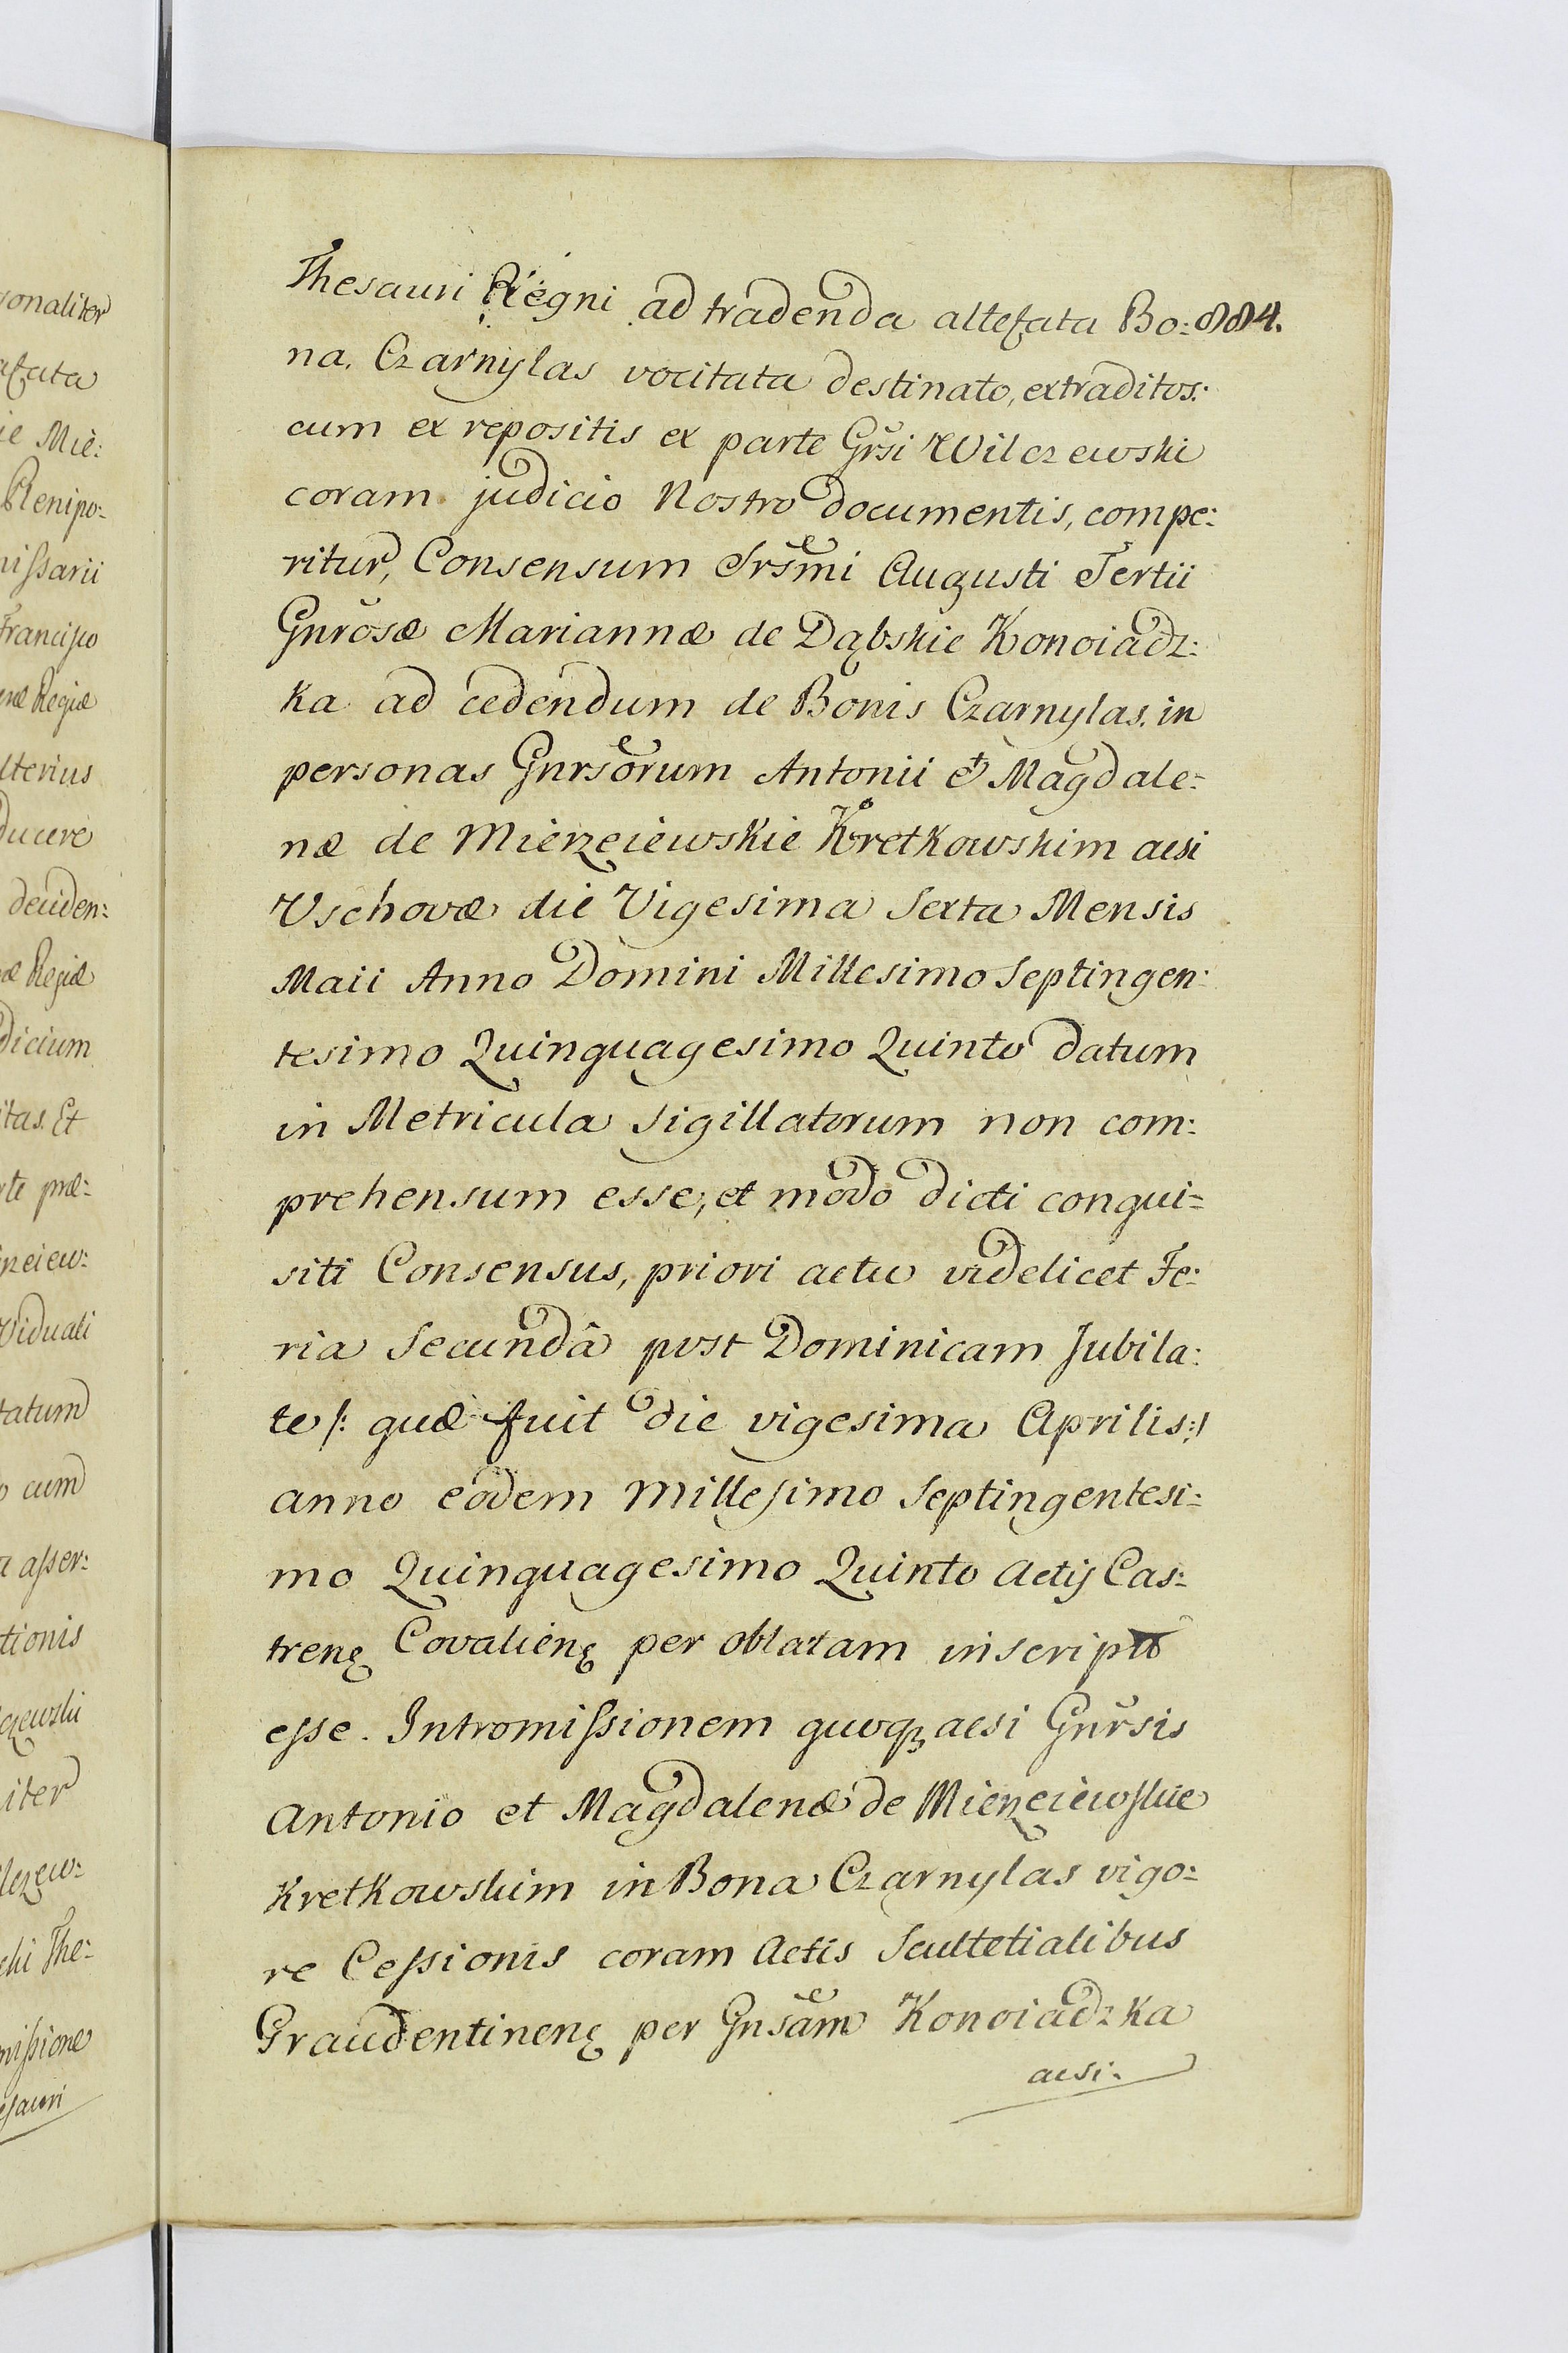 sonaliter
afata
ie Mie:
Plenipo:
missarii
Francisco
enæ Regiæ
lterius
ducere
deciden:
æ Regiæ
dicium
itas. Et
rte præ:
rzeiew:
Viduali
tatum
o cum
a asser:
ctionis
czewski
iter
lczew:
chi The:
missione
esauri
Thesauri Regni ad tradenda altefata Bo: 884.
na. Czarnylas vocitata destinato, extraditos:
cum ex repositis ex parte Grsi Wilczewski
coram judicio Nostro documentis, compe:
ritur, Consensum Srsmi Augusti Tertii
Gnrosæ Mariannæ de Dąbskie Konoiadz:
ka ad cedendum de Bonis Czarnylas. in
personas Gnrsorum Antonii et Magdale:
næ de Mierzeiewskie Kretkowskim acsi
Vschovæ die Vigesima Sexta Mensis
Maii Anno Domini Millesimo Septingen:
tesimo Quinquagesimo Quinto datum
in Metricula sigillatorum non com:
prehensum esse, et modo dicti conqui=
siti Consensus, priori actu videlicet Fe:
ria Secundâ post Dominicam Jubila:
te /: quæ fuit die vigesima Aprilis:/
anno eodem Millesimo Septingentesi:
mo Quinquagesimo Quinto Actis Cas:
trenę Covalienę per oblatam inscripto
esse. Intromissionem quoqꝫ acsi Gnrsis
Antonio et Magdalenæ de Mierzeiewskie
Kretkowskim in Bona Czarnylas vigo=
re Cessionis coram Actis Scultetialibus
Graudentinenę per Gnsam Konoiadzka
acsi.